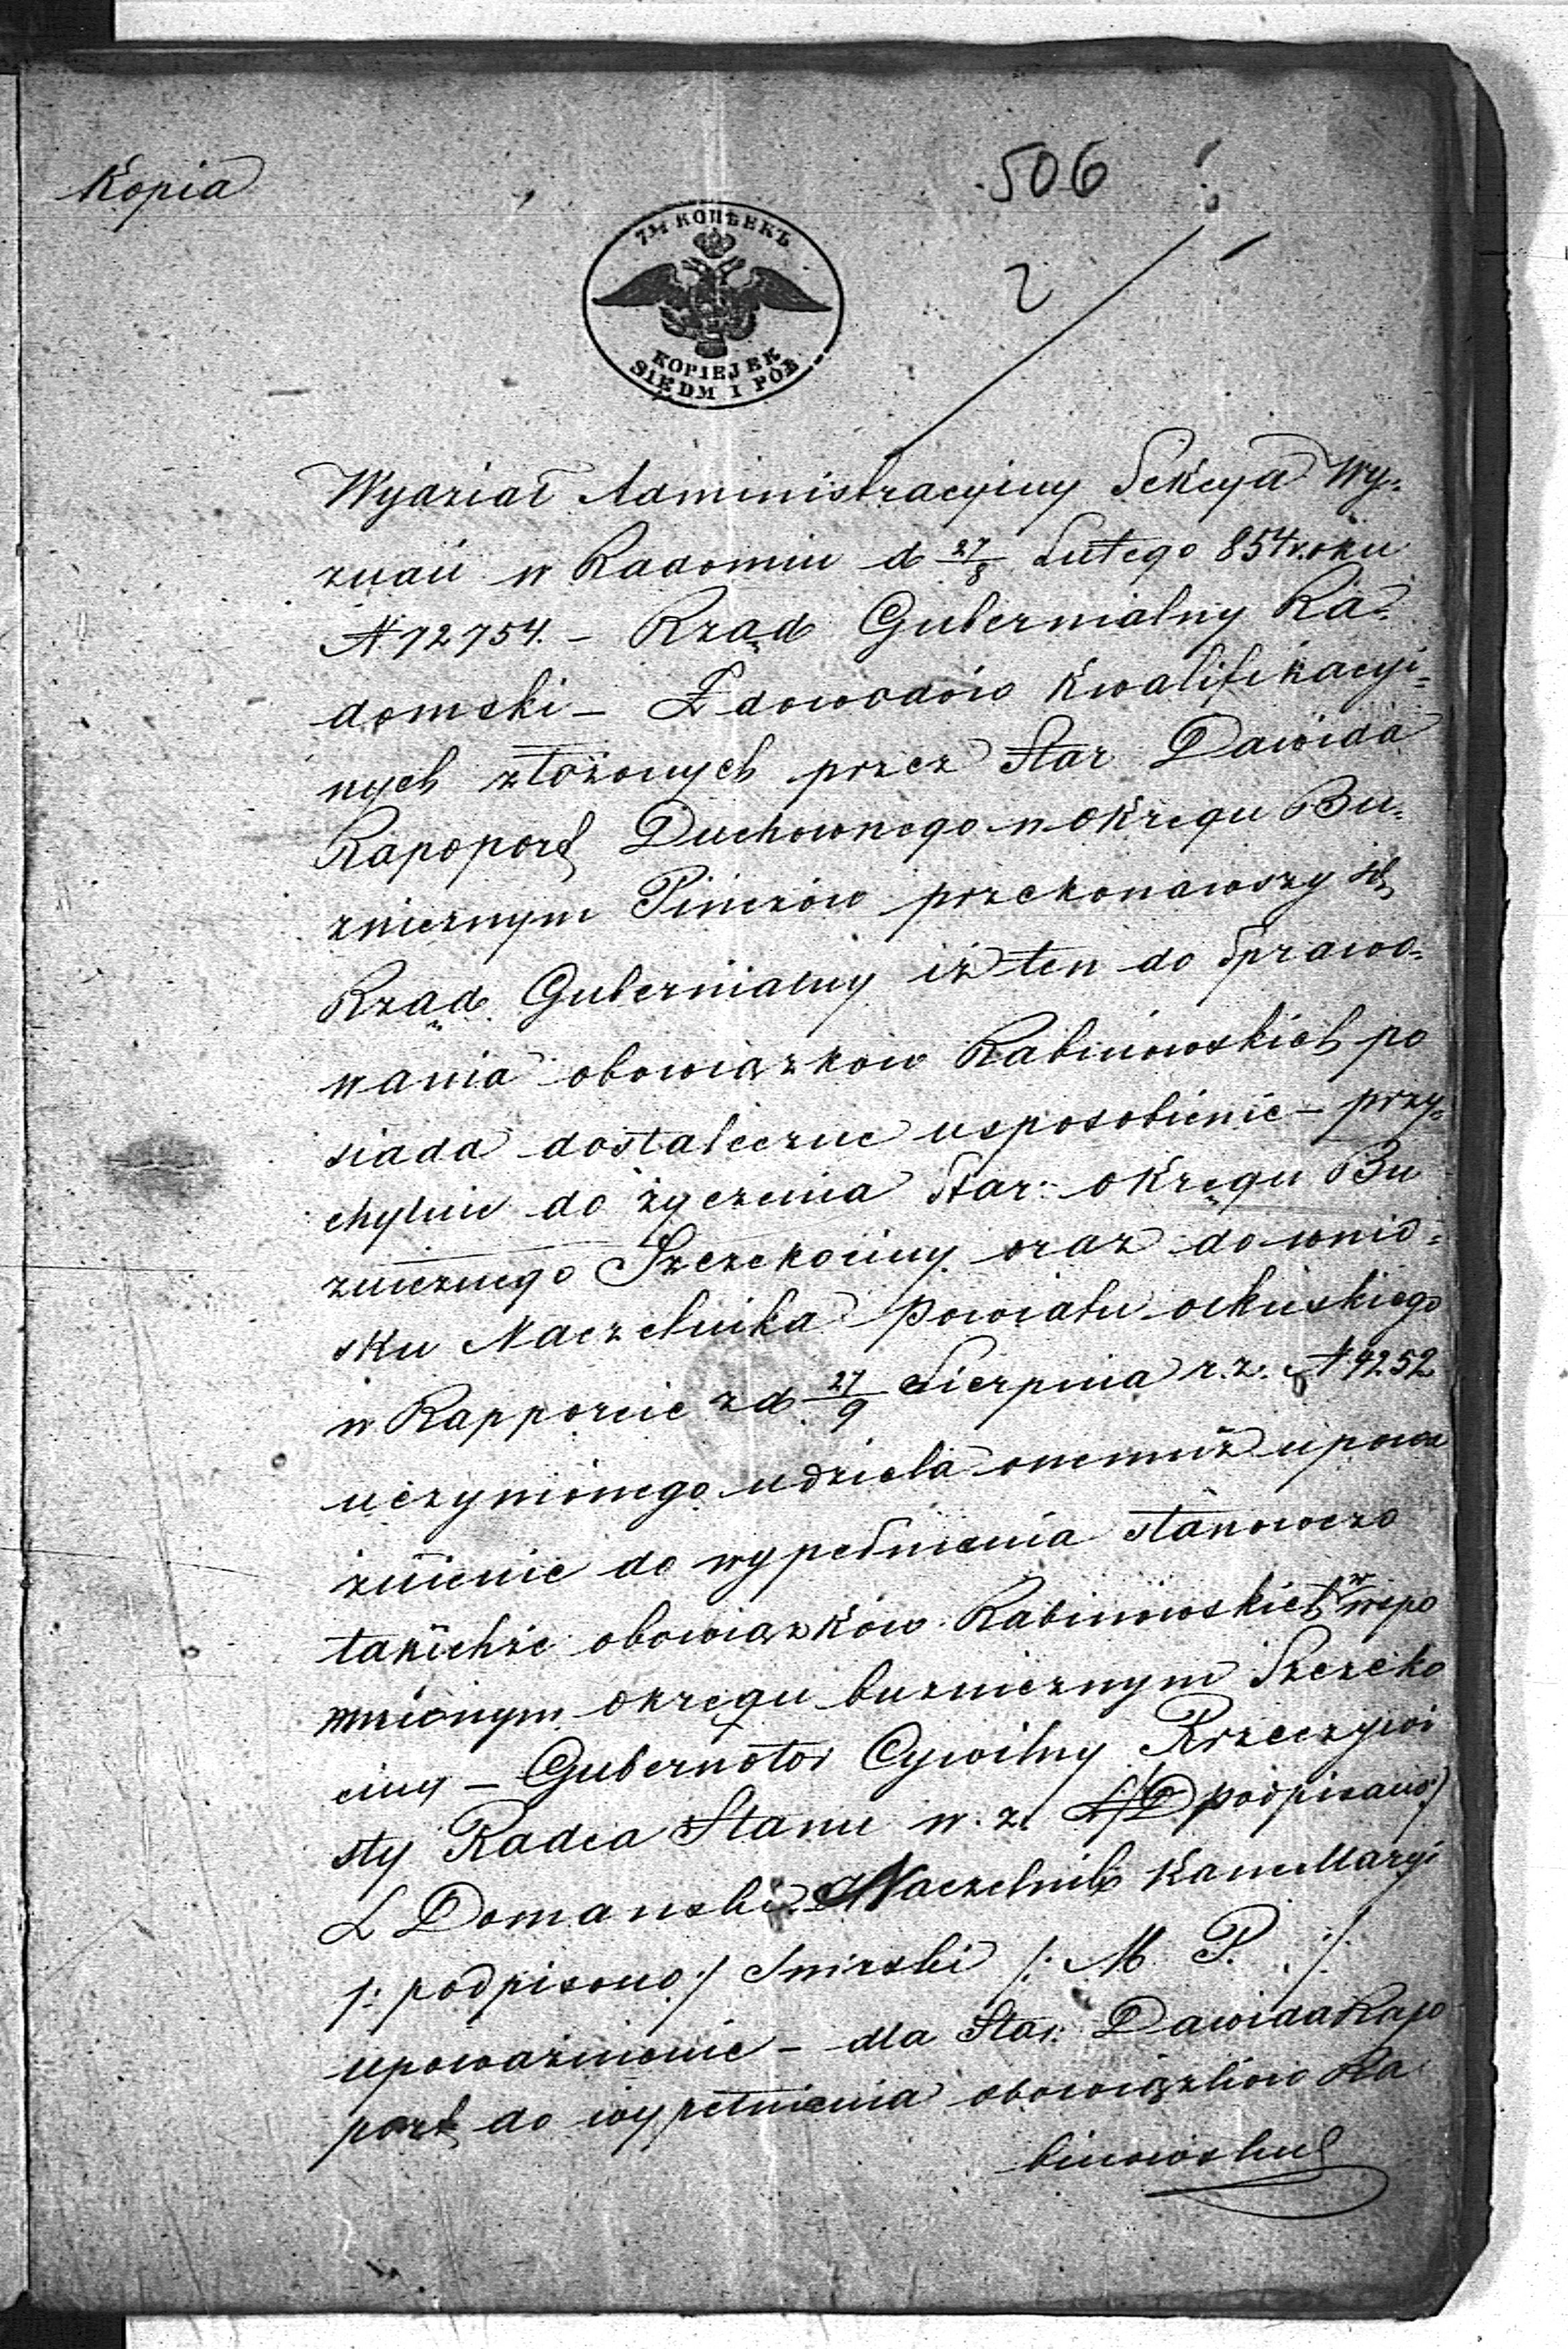 Kopia
506
2
7½ КОПѢЕКЪ
KOPIEJEK
SIEDM I PÓŁ
Wydział Administracyiny Sekcya Wy-
znań w Radomiu d 27/8 Lutego 854 roku
N 72754. – Rząd Gubernialny Ra-
domski – Z dowodów Kwalifikacyi-
nych złożonych przez Star Dawida
Rapoport Duchownego w okręgu Bu-
znicznym Pinczów przekonawszy się
Rząd Gubernialny iż ten do sprawo-
wania obowiązkow Rabinowskich po
siada dostateczne usposobienie – przy-
chylnie do życzenia Star: okręgu Bu
znicznego Szczekociny oraz do wnio-
sku Naczelnika Powiatu olkuskiego
w Rapporcie z d 27/9 Sierpnia r.z. N 9252
uczynionego udziela onemuż upowa
żnienie do wypełnienia stanowczo
takichże obowiązków Rabinowskich w wspo
mnionym okręgu buznicznym Szczeko
ciny – Gubernator Cywilny Rzeczywi
sty Radca Stanu w. z. podpisano)
L Domanski Naczelnik Kancellaryi
/: podpisano :/ Smirski /: M. P. :/
upoważnienie – dla Star. Dawida Rapo
port do wypełnienia obowiązków Ra
binowskich